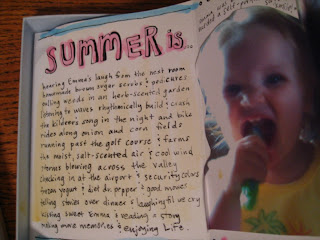 SUMMER is...
hearing Emma's laugh from the next room
homemade brown sugar scrubs & pedicures
pulling weeds in an herb-scented garden
listening to waves rhythmically build & crash
the kildeer's song in the night and bike
rides along onion and corn fields
running past the golf course & farms
the moist, salt-scented air & cool wind
storms blowing across the valley
checking in at the airport & security
frozen yogurt & diet dr. pepper & good movies
telling stories over dinner & laughing til we cry
kissing sweet Emma & reading a story
making more memories & enjoying Life.